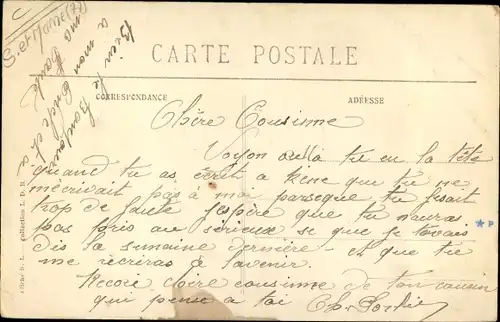 S. et Marne (77)
Bien le bonjour
a mon Oncle et a
ma tante
CARTE POSTALE
CORRESPONDANCE
ADRESSE
Chère Cousinne
Voyon outla tu eu la tête
quand tu as ecrit a Rene que tu ne
mécrivait pas a moi parseque tu fesait
trop de faute Jespère que tu nauras
pas pris au sérieux se que je tavais
dis la semaine dernière et que tu
me recriras à lavenir.
Recoie chère cousinne de ton cousin
qui pense a toi Ch.
collection L. D. B.